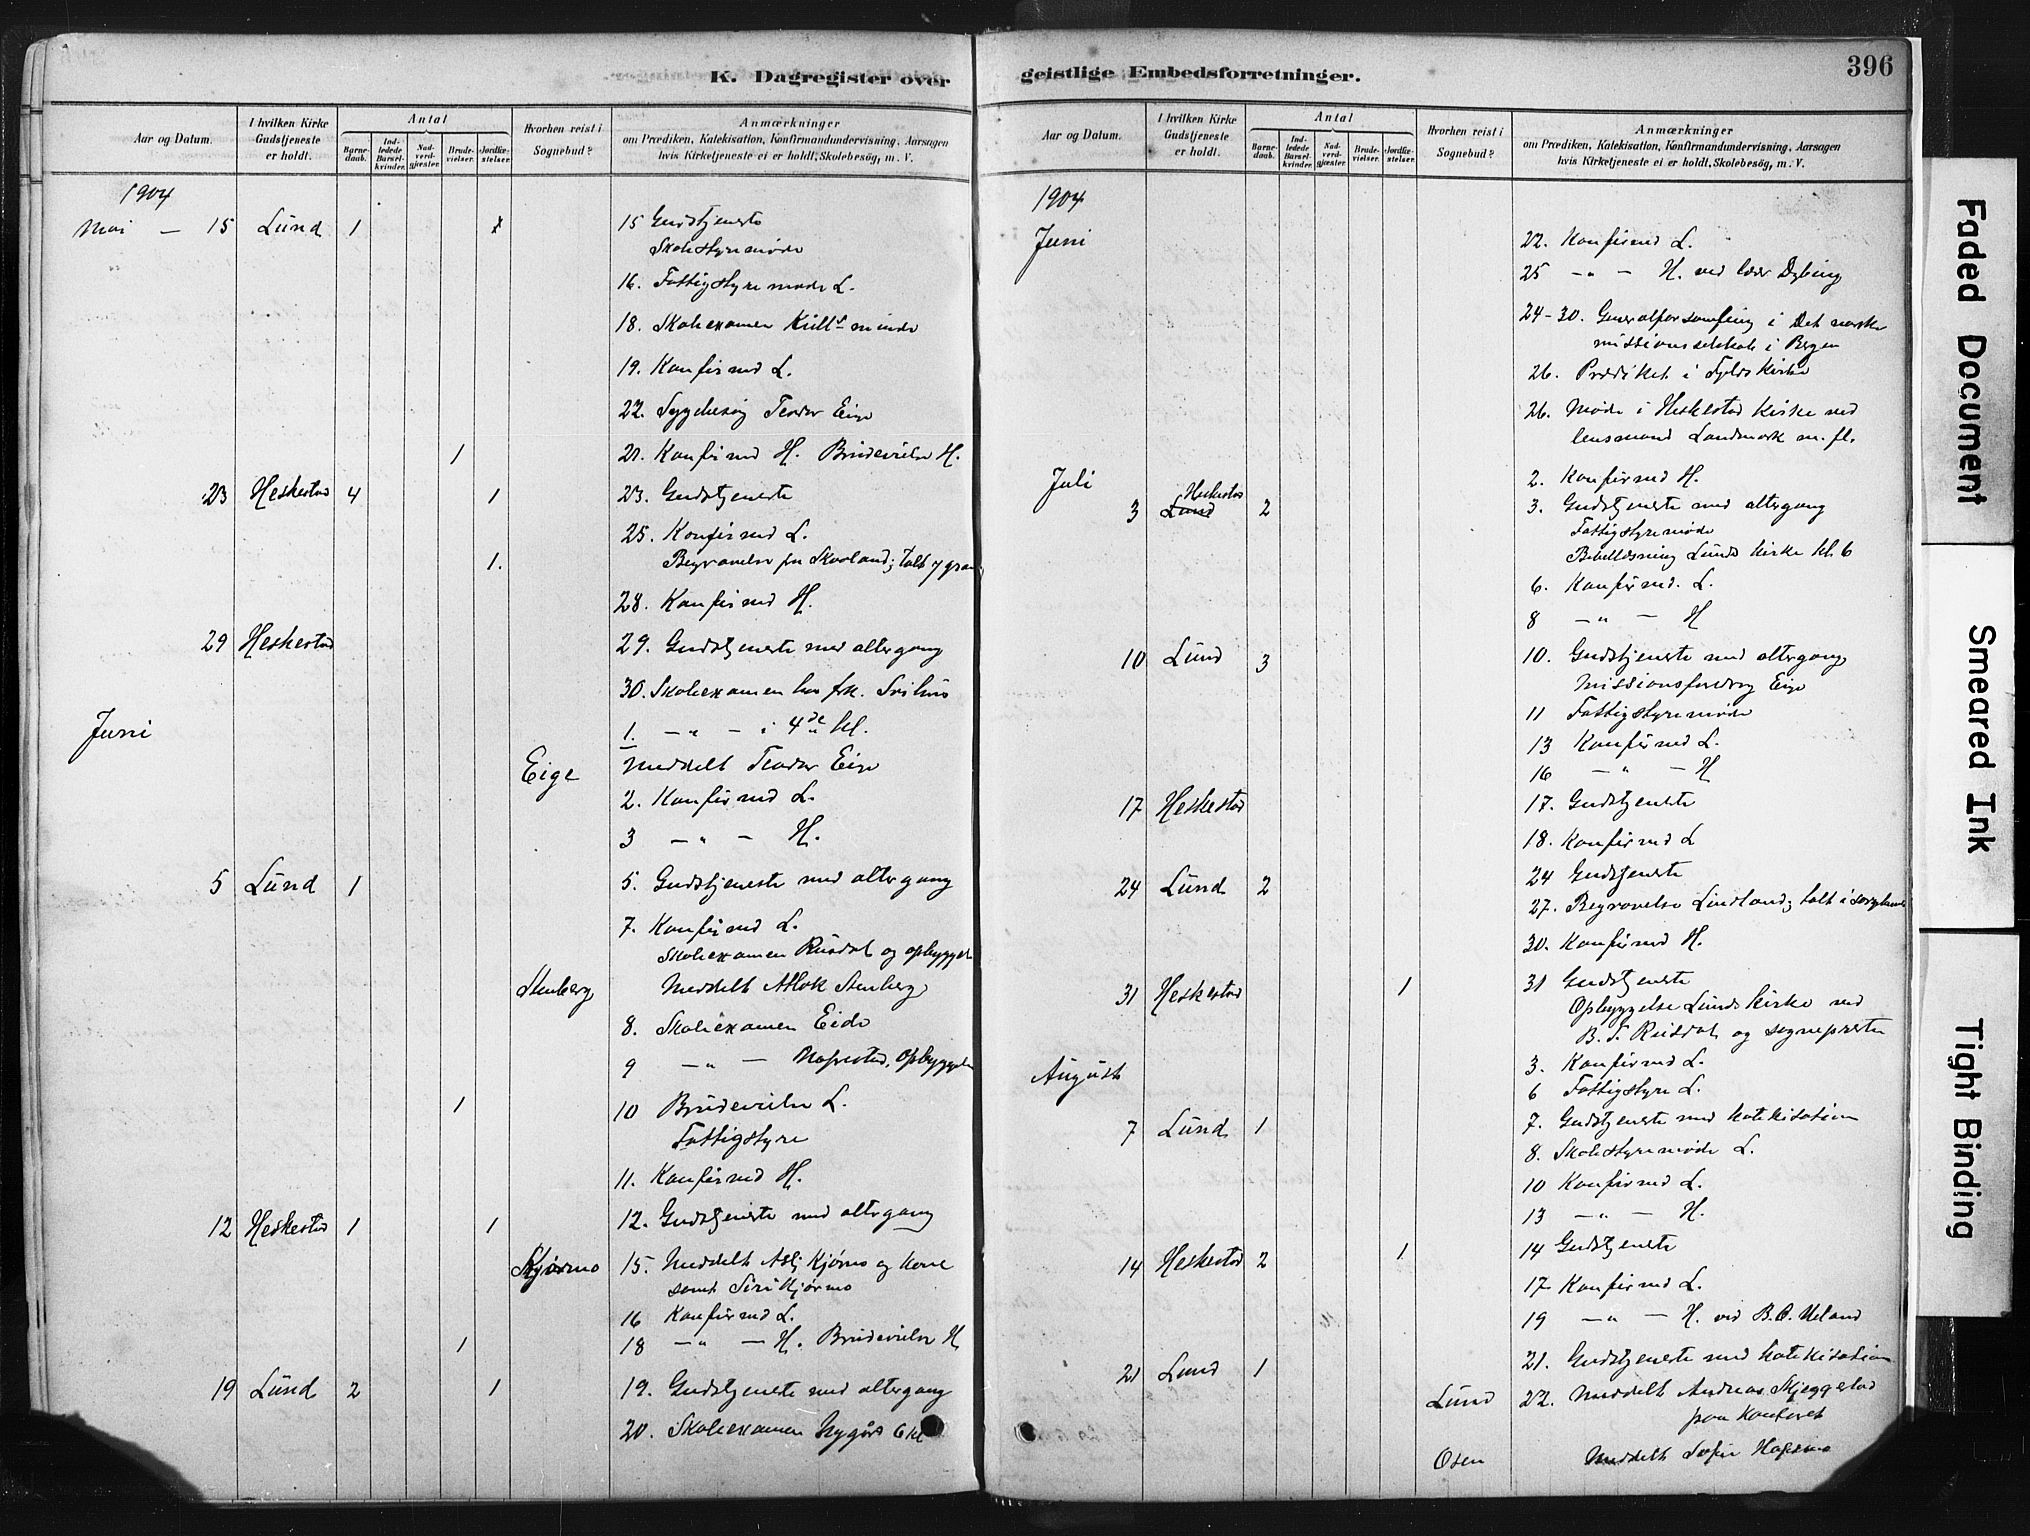 K. Dagregister over
Aar og Datum.
I hvilken Kirke Gudstjeneste er holdt.
Antal
Barne-daab.
Ind-ledede Barsel-kvinder.
Nad-verd-gjester.
Brude-vielser.
Jordfæ-stelser.
Hvorhen reist i Sognebud?
Anmærkninger
om Prædiken, Katekisation, Konfirmandundervisning, Aarsagen
hvis Kirketjeneste ei er holdt, Skolebesøg, m. V.
1904
Mai — 15 Lund 1 1 15 Gudstjeneste
Skolestyremøde
16. Fattigstyremøde L.
18. Skoleexamen
19. Konfirmd L.
22. Sygebesøg Teodor Eige
1 21. Konfirmd H. Brudevielse H.
23 Heskestad 4 1 23. Gudstjeneste
25. Konfirmd L.
1. Begravelse fra Skaaland; talt
28. Konfirmd H.
29 Heskestad 29. Gudstjeneste med altergang
30. Skoleexamen hos frk.
Juni 1. —"— i 4de kl.
Eige Meddelt Teodor Eige
2. Konfirmd L.
3 —"— H.
5 Lund 1 5. Gudstjeneste med altergang
7. Konfirmd L.
Skoleexamen Rusdal og opbyggel
Stenberg Meddelt Stenberg
8. Skoleexamen Eide
9 —"— opbyggelse
1 10 Brudevielse L.
Fattigstyre
11. Konfirmd H.
12 Heskestad 1 1 12. Gudstjeneste med altergang
Kjørmo 15. Meddelt Kjørmo og kone
samt Siri Kjørmo
16 Konfirmd L.
1 18 —"— H. Brudevielse H
19 Lund 2 1 19. Gudstjeneste med altergang
20. Skoleexamen Nygård 6 kl
geistlige Embedsforretninger.
396
Aar og Datum.
I hvilken Kirke Gudstjeneste er holdt.
Antal
Barne-daab.
Ind-ledede Barsel-kvinder.
Nad-verd-gjester.
Brude-vielser.
Jordfæ-stelser.
Hvorhen reist i Sognebud?
Anmærkninger
om Prædiken, Katekisation, Konfirmandundervisning, Aarsagen
hvis Kirketjeneste ei er holdt, Skolebesøg, m. V.
1904
Juni 22. Konfirmd L.
25 —"— H. ved lærer Dybing
24-30. Generalforsamling i Det norske
missionsselskab i Bergen
26. Prædiket i kirke
26. Møde i Heskestad kirke ved
lensmand Landmark m. fl.
Juli 2. Konfirmd H.
3 Lund Heskestad 2 3. Gudstjeneste med altergang
Fattigstyremøde
Bibellæsning Lunds kirke kl. 6
6. Konfirmd. L.
8 —"— H
10 Lund 3 10. Gudstjeneste med altergang
Missionsforedrag Eige
11 Fattigstyremøde
13 Konfirmd L.
16 —"— H
17 Heskestad 17. Gudstjeneste
18. Konfirmd L
24 Lund 2 24 Gudstjeneste
27. Begravelse Lindland; talt i
30. Konfirmd H.
31 Heskestad 1 31 Gudstjeneste
Opbyggelse Lunds kirke ved
B. T. Rusdal og sogneprester
August 3. Konfirmd L.
6 Fattigstyre L.
7 Lund 1 7. Gudstjeneste med katekisation
8. Skolestyremøde L.
10 Konfirmd L.
13 —"— H.
14 Heskestad 2 1 14 Gudstjeneste
17. Konfirmd L.
19 —"— H. ved B. O. Ueland
21 Lund 1 21. Gudstjeneste med katekisation
Lund 22. Meddelt Andreas Skjeggestad
paa kontoret
Osen Meddelt Sofie
Faded Document
Smeared Ink
Tight Binding